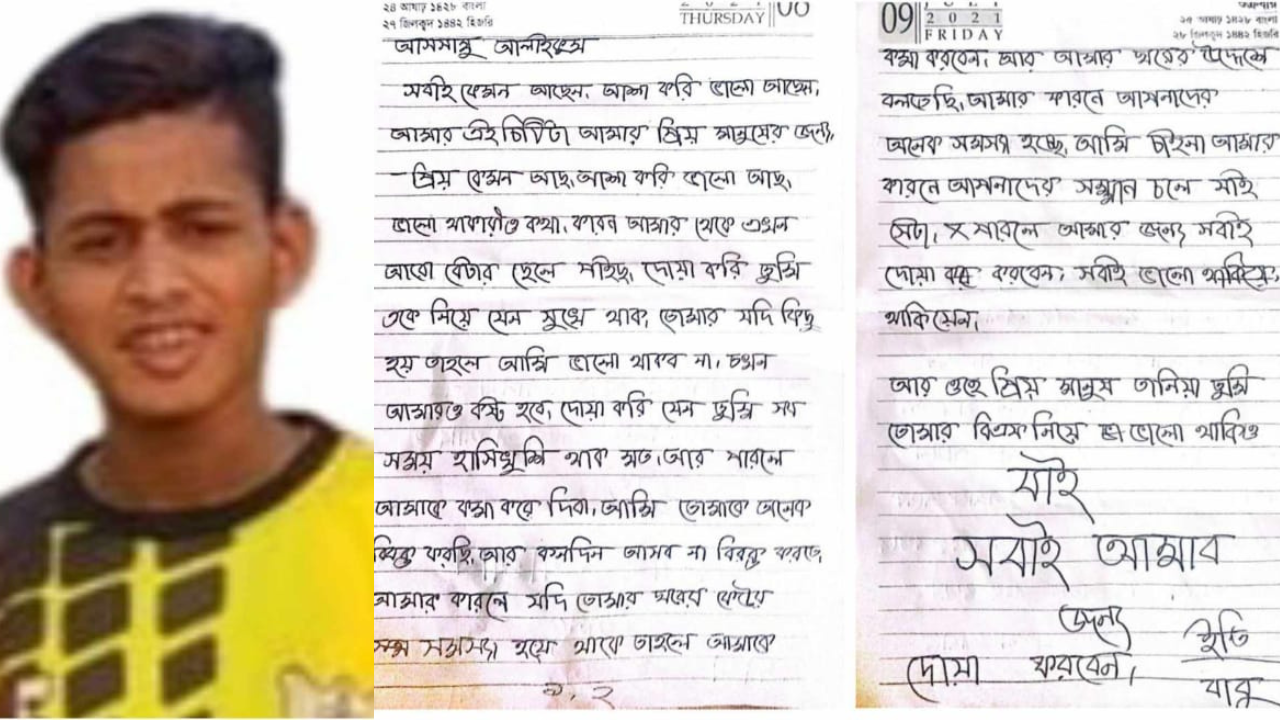 ২৪ আষাঢ় ১৪২৮ বাংলা
২৭ জিলকদ ১৪৪২ হিজরি
THURSDAY
08
আসসালামু আলাইকুম
সবাই কেমন আছেন, আশা করি ভালো আছেন,
আমার এই চিঠিটা আমার প্রিয় মানুষের জন্য,
প্রিয় কেমন আছ, আশা করি ভালো আছ,
ভালো থাকারই কথা, কারন আমার থেকে এখন
আরো বেটার ছেলে পাইছ, দোয়া করি তুমি
তকে নিয়ে যেন সুখে থাক, তোমার যদি কিছু
হয় তাহলে আমি ভালো থাকব না, তখন
আমারও কষ্ট হবে, দোয়া করি যেন তুমি সব
সময় হাসিখুশি থাক মত, আর পারলে
আমাকে ক্ষমা করে দিবা, আমি তোমাকে অনেক
করছি, আর কনদিন আসব না বিরক্ত করতে,
আমার কারনে যদি তোমার ঘরের
সমস্যা হয়ে থাকে তাহলে আমাকে
09
2021
FRIDAY
২৫ আষাঢ় ১৪২৮ বাংলা
২৮ জিলকদ ১৪৪২ হিজরি
ক্ষমা করবেন, আর আমার ঘরের উদ্দেশে
বলতেছি, আমার কারনে আপনাদের
অনেক সমস্যা হচ্ছে, আমি চাইনা আমার
কারনে আপনাদের সম্মান চলে যাই
সেটা, পারলে আমার জন্যে সবাই
দোয়া করবেন, সবাই ভালো
থাকিয়েন,
আর ওহে প্রিয় মানুষ তানিয়া তুমি
তোমার বিএফ নিয়ে ভালো থাকিও
যাই
সবাই আমার
জন্য
দোয়া করবেন,
ইতি
বাবু